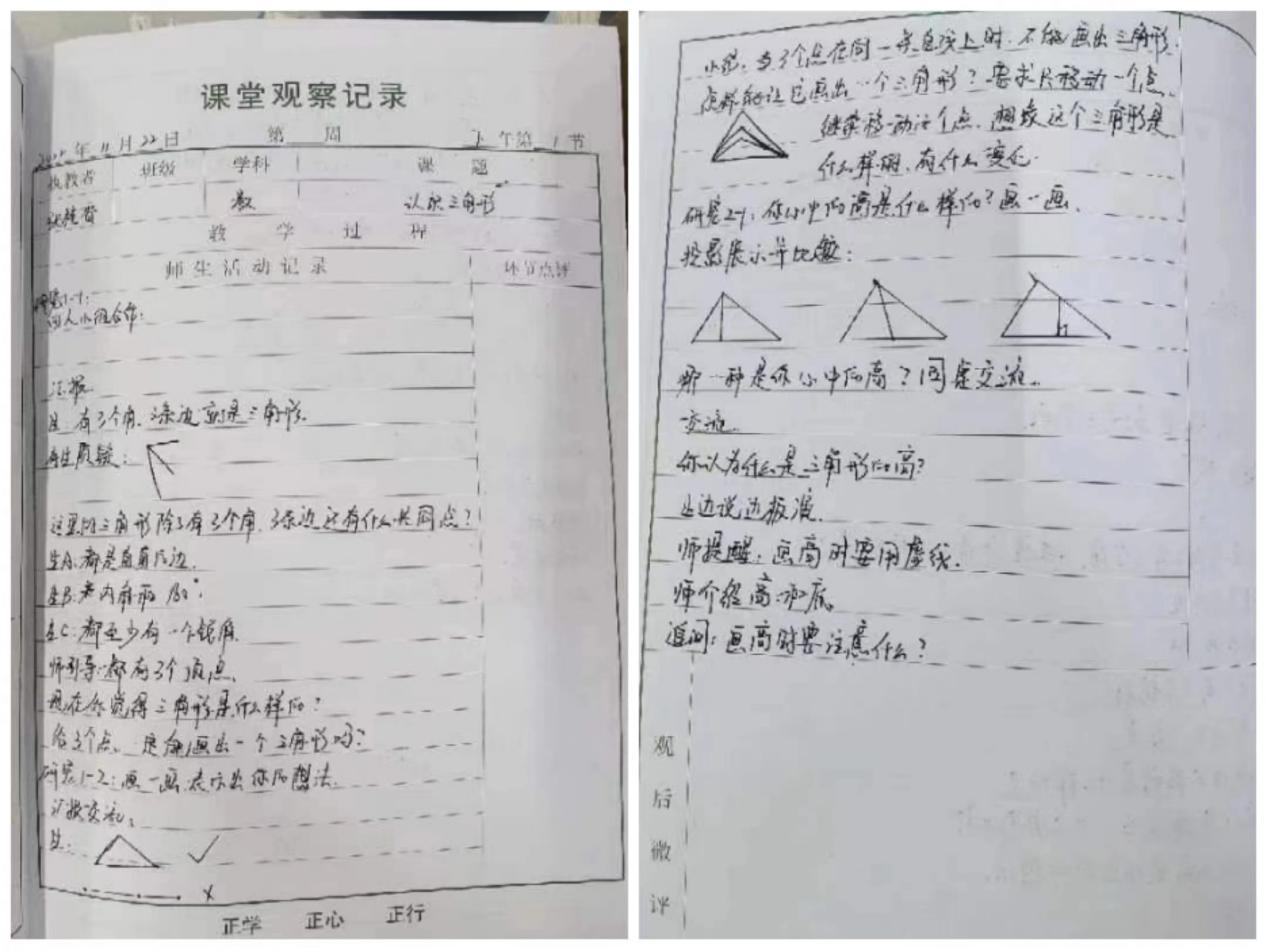 课堂观察记录
年 11 月 22 日 第 周 下 午第 1 节
执教者 班级 学科 课 题
数 认识三角形
教 学 过 程
师生活动记录 环节点评
研究1-1:
四人小组合作:
汇报
生:有3个角,3条边就是三角形.
再生质疑:
这里的三角形除了有3个角,3条边还有什么共同点?
生A:都是直直的边.
生B:内角和180°.
生C:都至少有一个锐角.
师引导:都有3个顶点.
现在你觉得三角形是什么样的?
给3个点,一定能画出一个三角形吗?
研究1-2:画一画,表示出你的想法.
汇报交流:
生: ✓
×
正学 正心 正行
小结:当3个点在同一条直线上时,不能画出三角形.
怎样能让它画出一个三角形?要求只移动一个点.
继续移动这个点,想象这个三角形是
什么样的,有什么变化.
研究2-1:你心中的高是什么样的?画一画.
投影展示并比较:
哪一种是你心中的高?同桌交流.
交流.
你认为什么是三角形的高?
生边说边板演.
师提醒:画高时要用虚线.
师介绍高和底.
追问:画高时要注意什么?
观
后
微
评